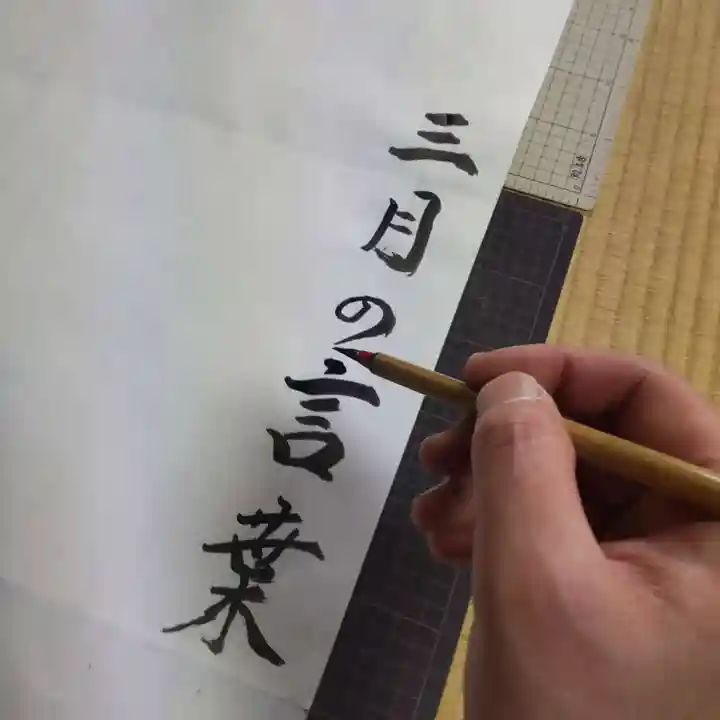 三月の言葉